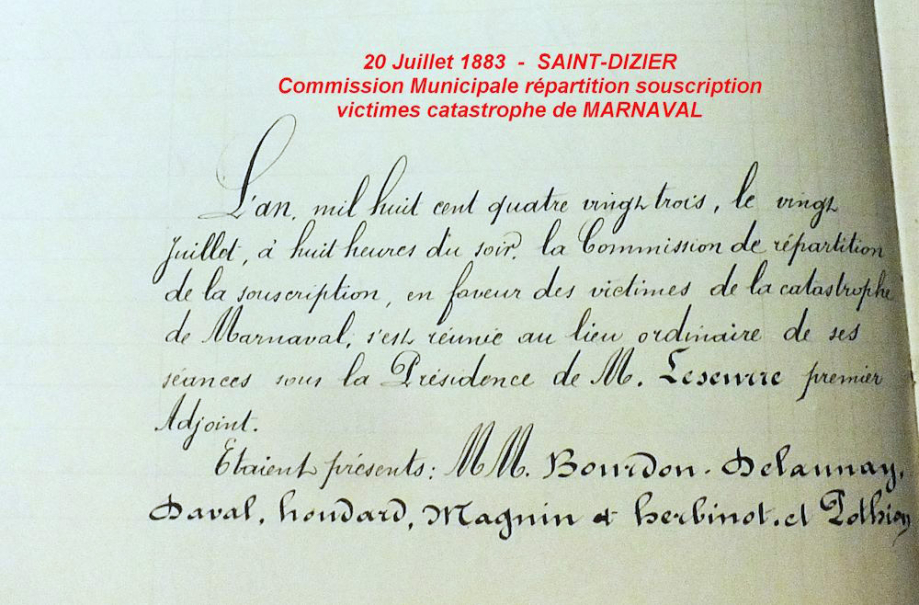 20 Juillet 1883 - SAINT-DIZIER
Commission Municipale répartition souscription
victimes catastrophe de MARNAVAL
L'an, mil huit cent quatre vingt trois, le vingt
Juillet, à huit heures du soir, la Commission de répartition
de la souscription, en faveur des victimes de la catastrophe
de Marnaval, s'est réunie au lieu ordinaire de ses
séances sous la Présidence de M. Leseurre premier
Adjoint.
Etaient présents: MM. Bourdon. Delaunay,
Daval, houdard, Magnin et herbinot. et Pothier